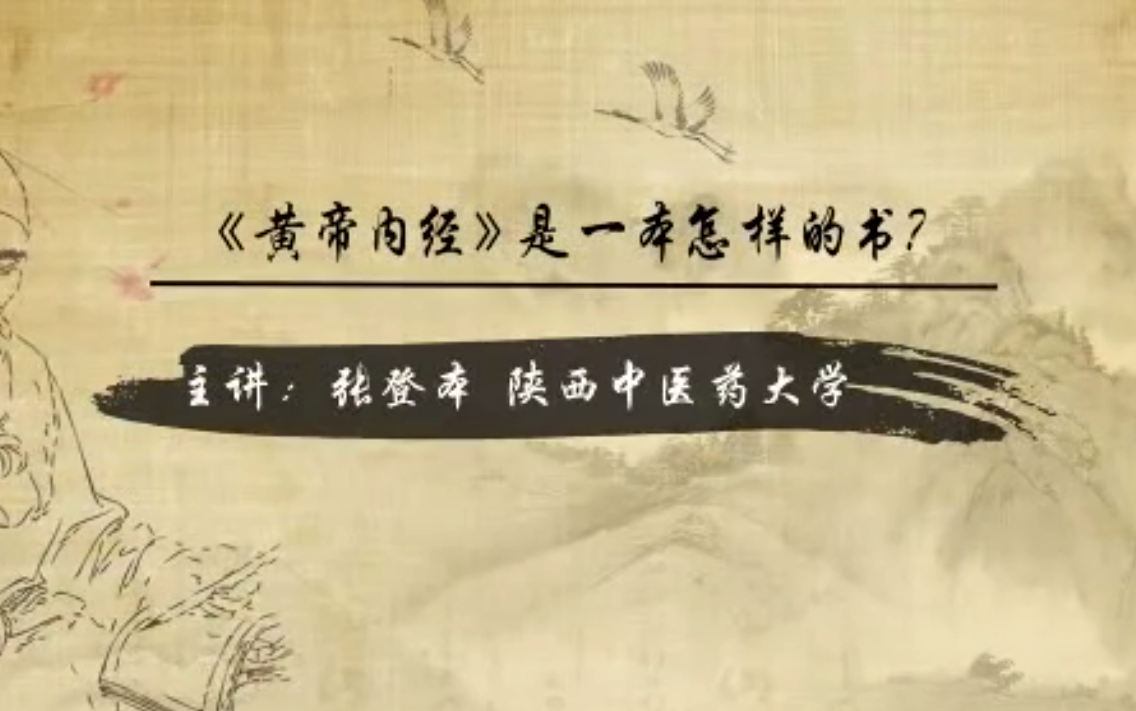 《黄帝内经》是一本怎样的书？
主讲：张登本 陕西中医药大学